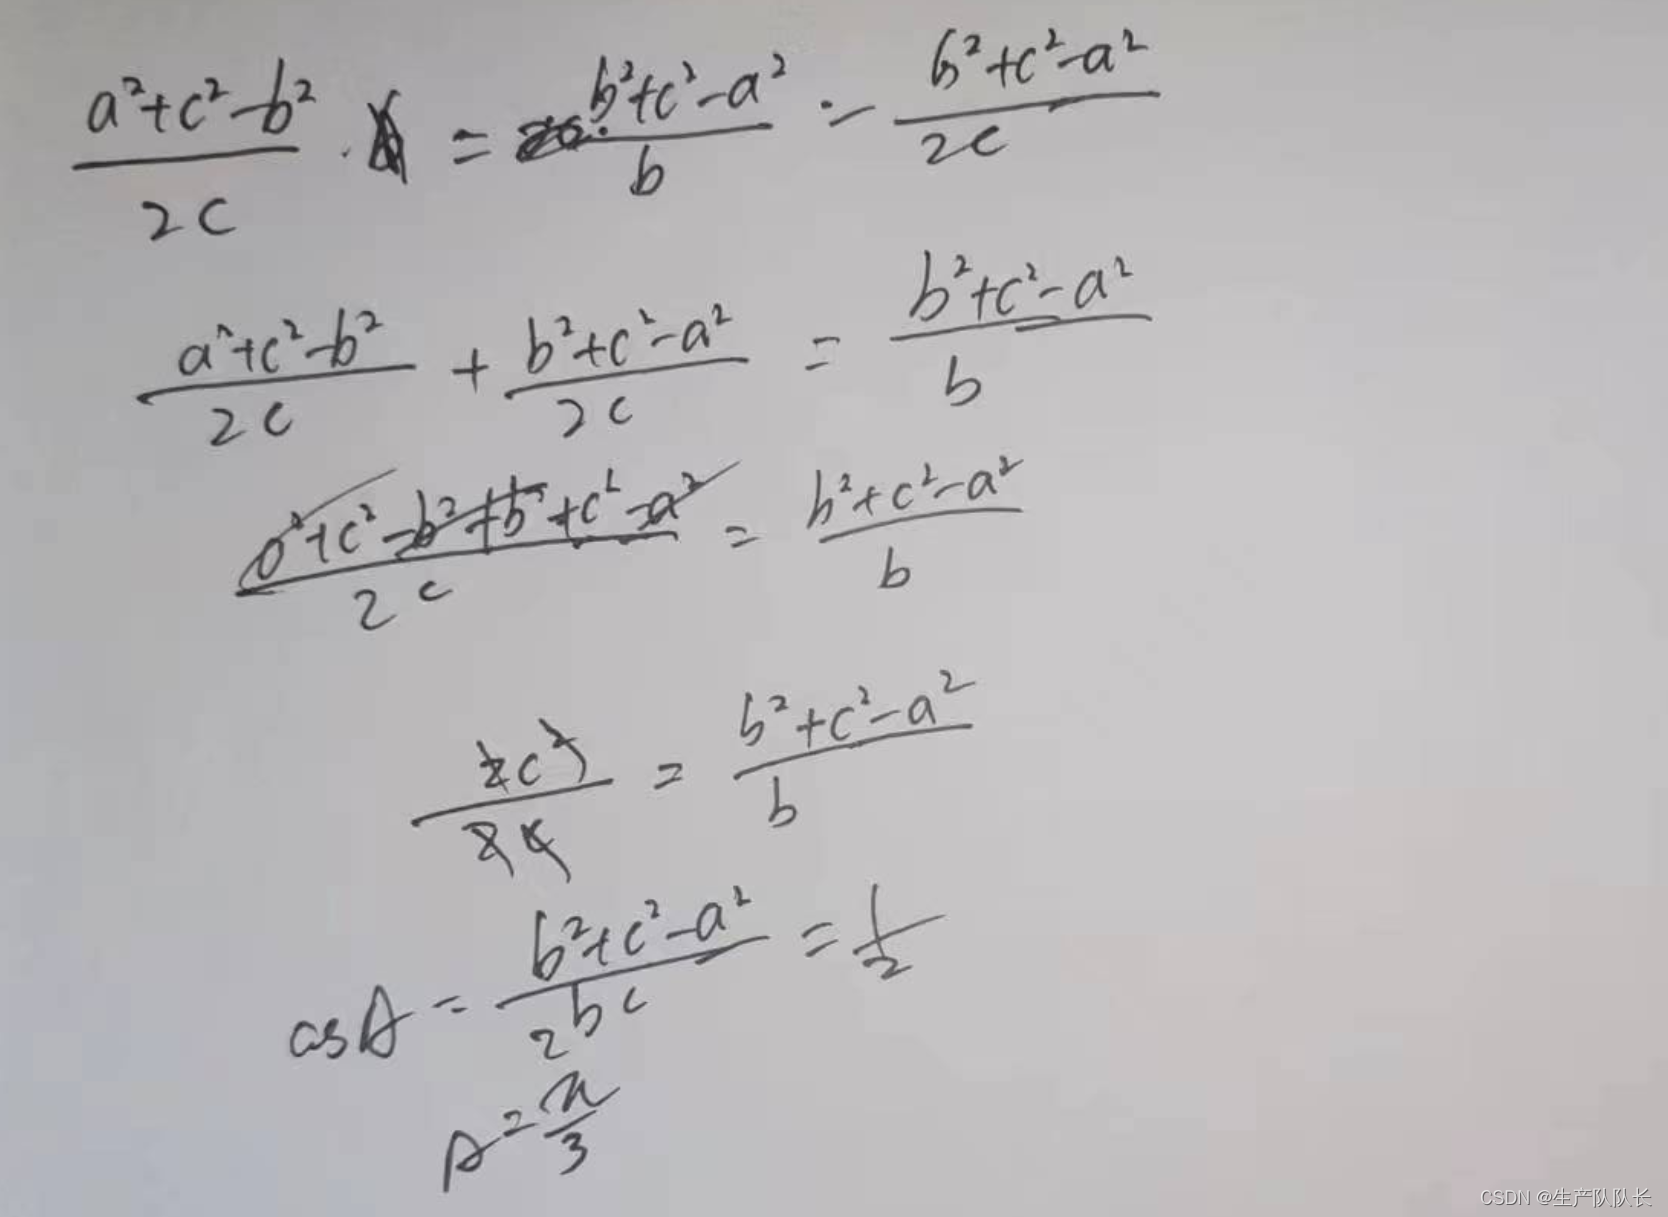 (a²+c²-b²)/(2c) · = (b²+c²-a²)/b - (b²+c²-a²)/(2c)
(a²+c²-b²)/(2c) + (b²+c²-a²)/(2c) = (b²+c²-a²)/b
(a²+c²-b²+b²+c²-a²)/(2c) = (b²+c²-a²)/b
(2c²)/(2c) = (b²+c²-a²)/b
cosA = (b²+c²-a²)/(2bc) = 1/2
A = π/3
CSDN @生产队队长